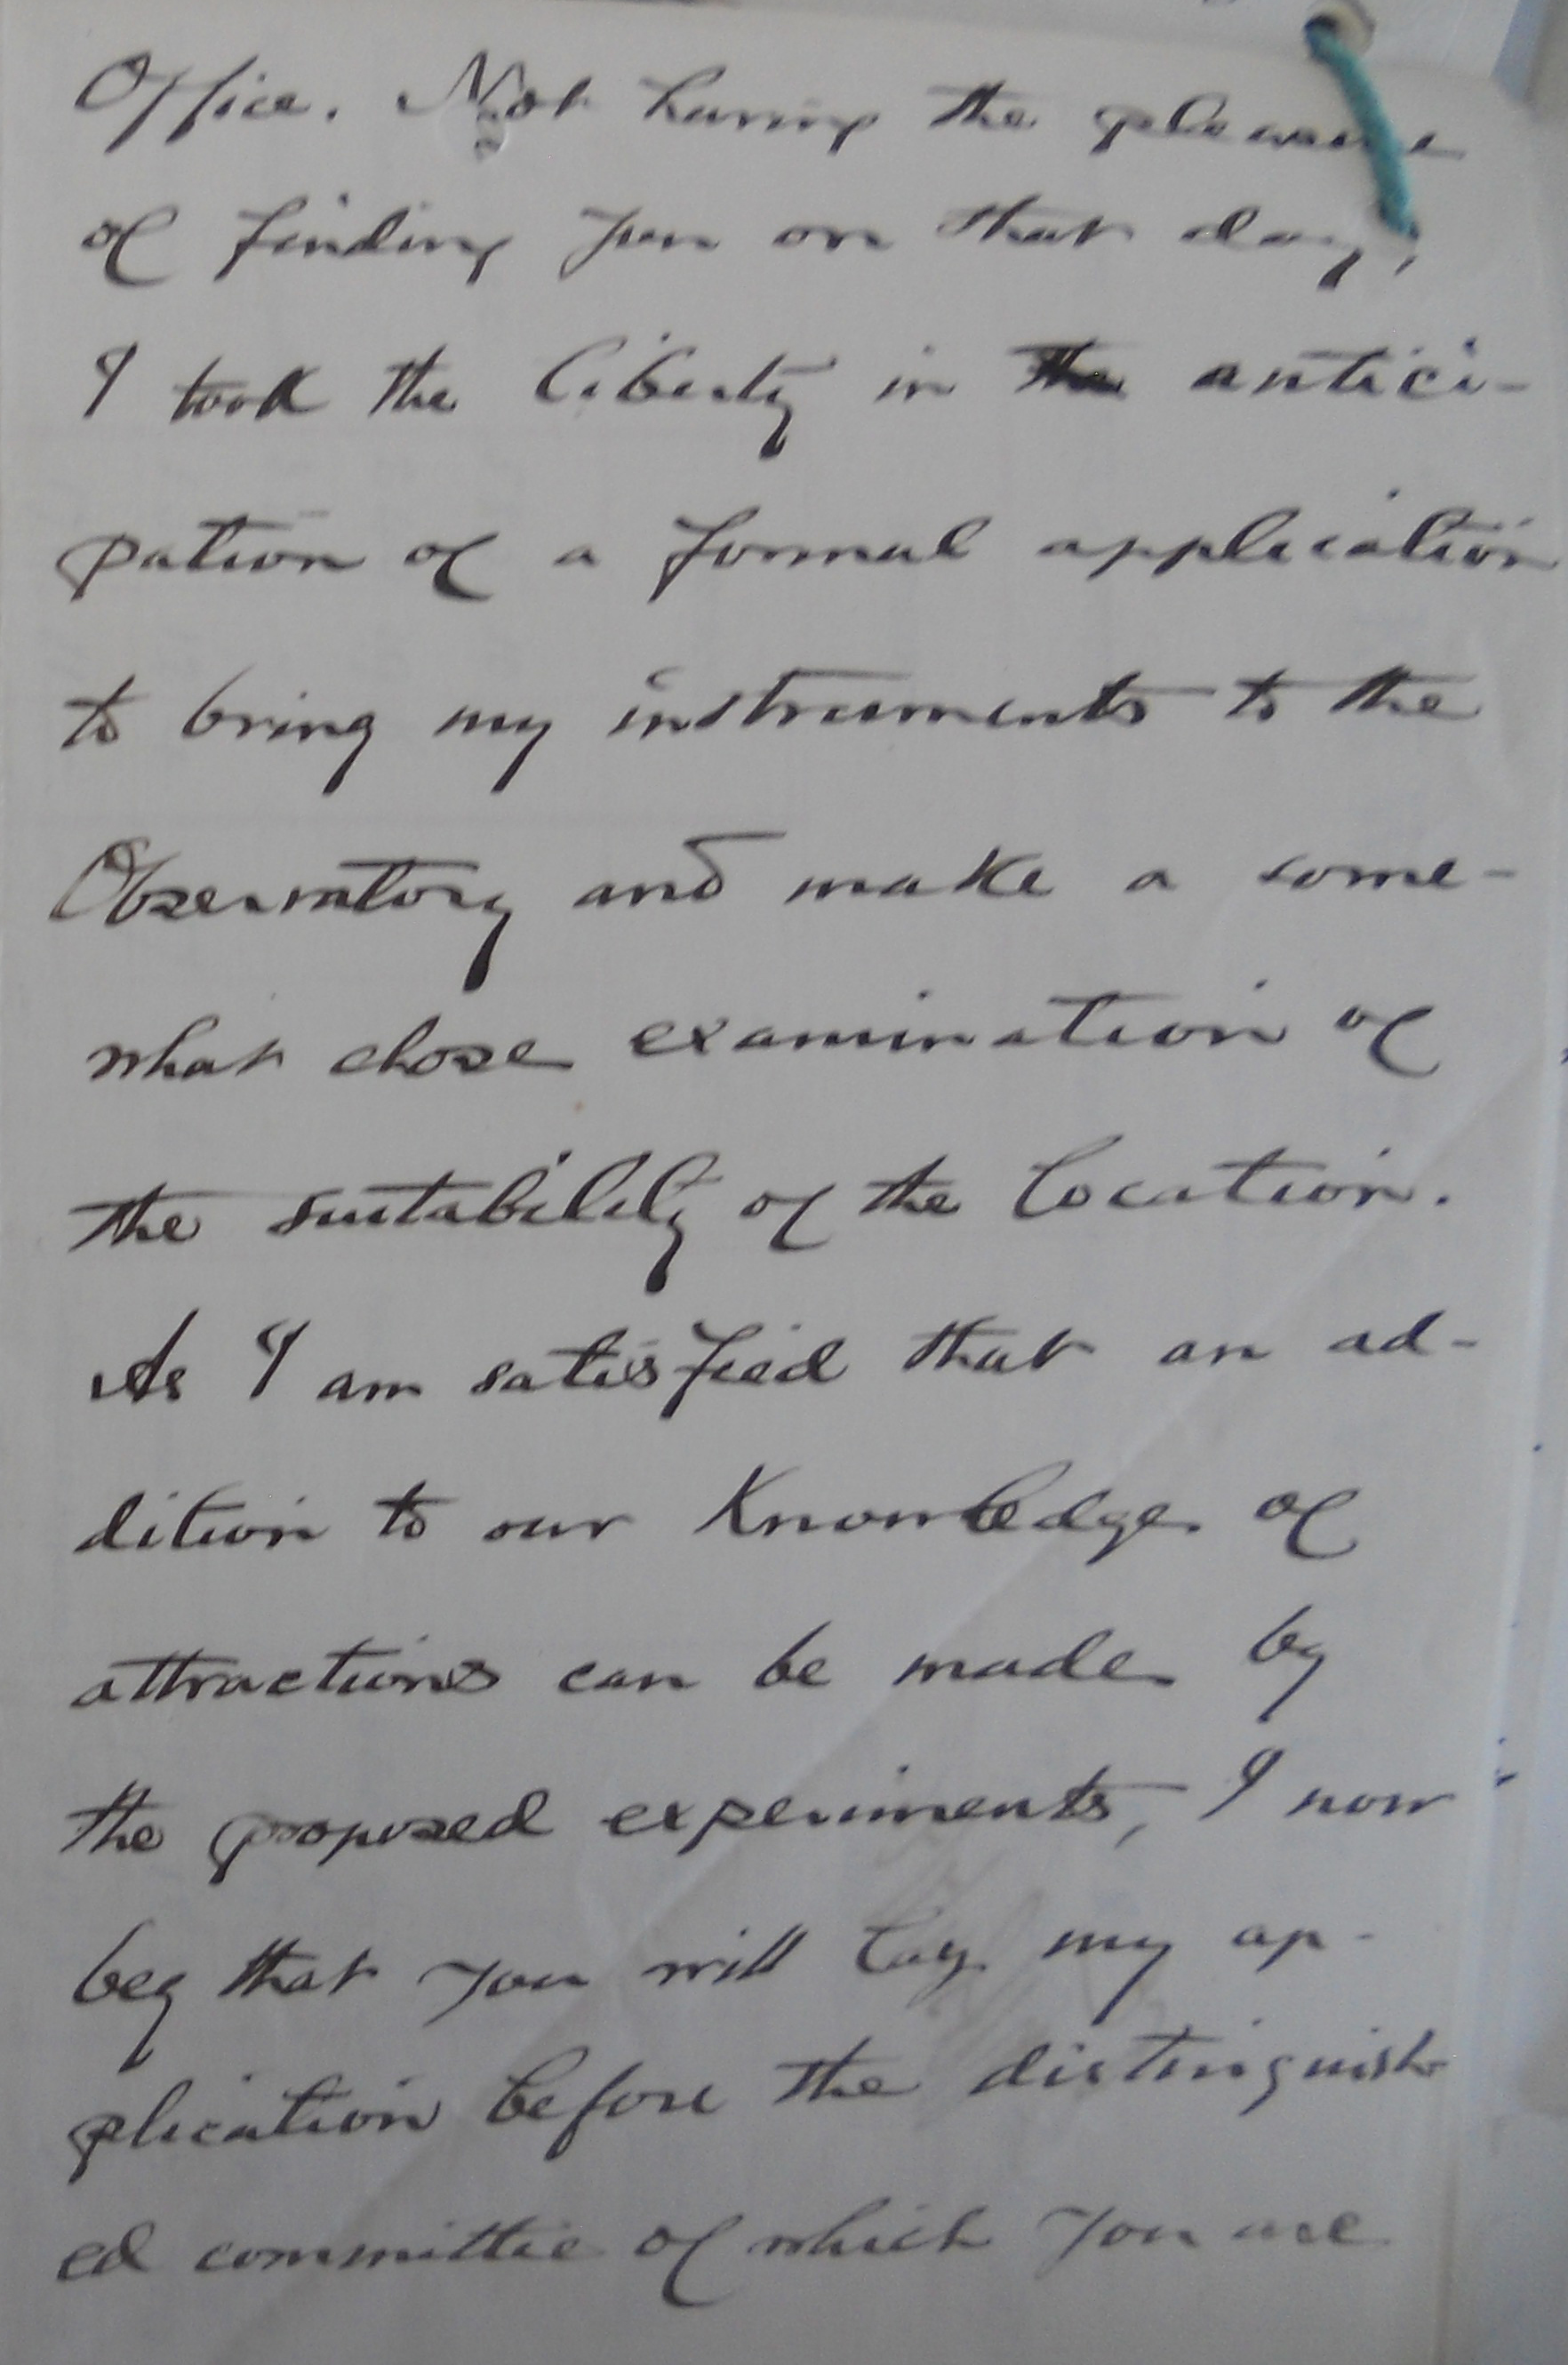 Office. Not having the pleasure
of finding you on that day,
I took the liberty in the antici-
pation of a formal application
to bring my instruments to the
Observatory and make a some-
what close examination of
the suitability of the location.
As I am satisfied that an ad-
dition to our Knowledge of
attractions can be made by
the proposed experiments, I now
beg that you will lay my ap-
plication before the distinguish-
ed committee of which you are